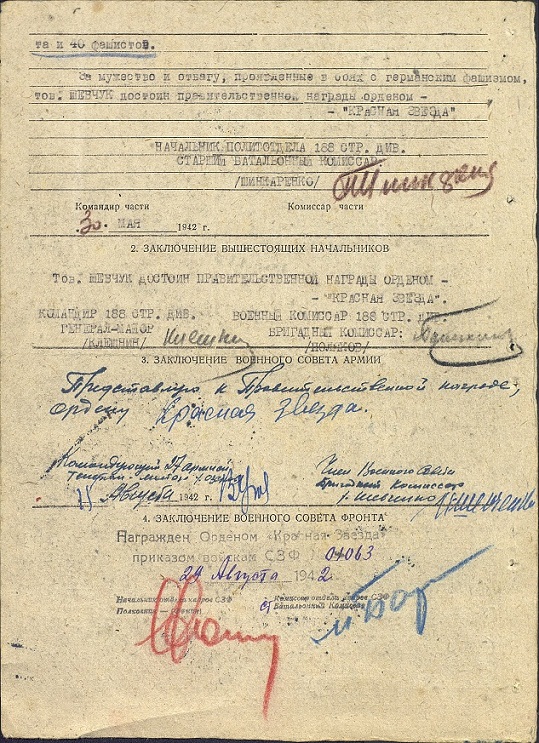 та и 40 фашистов.
За мужество и отвагу, проявленные в боях с германским фашизмом,
тов. ШЕВЧУК достоин правительственной награды орденом -
- "КРАСНАЯ ЗВЕЗДА"
НАЧАЛЬНИК ПОЛИТОТДЕЛА 188 СТР. ДИВ.
СТАРШИЙ БАТАЛЬОННЫЙ КОМИССАР
/ШИНКАРЕНКО/
Командир части Комиссар части
30. МАЯ 1942 г.
2. ЗАКЛЮЧЕНИЕ ВЫШЕСТОЯЩИХ НАЧАЛЬНИКОВ
Тов. ШЕВЧУК ДОСТОИН ПРАВИТЕЛЬСТВЕННОЙ НАГРАДЫ ОРДЕНОМ -
- "КРАСНАЯ ЗВЕЗДА".
КОМАНДИР 188 СТР. ДИВ. ВОЕННЫЙ КОМИССАР 188 СТР. ДИВ.
ГЕНЕРАЛ-МАЙОР БРИГАДНЫЙ КОМИССАР:
/КЛЕШНИН/ /ПОЛЯКОВ/
3. ЗАКЛЮЧЕНИЕ ВОЕННОГО СОВЕТА АРМИИ
Представляю к Правительственной награде,
ордену Красная Звезда.
Командующий Армией Член Военного Совета
генерал-майор бригадный комиссар
Августа 1942 г. Шевченко
4. ЗАКЛЮЧЕНИЕ ВОЕННОГО СОВЕТА ФРОНТА
Награжден Орденом «Красная Звезда»
приказом войскам СЗФ 01063
29 Августа 1942
Начальник отдела кадров СЗФ Комиссар отдела кадров СЗФ
Полковник Ст Батальонный Комиссар